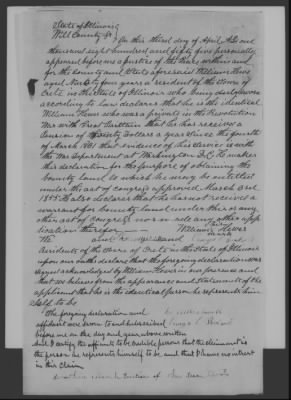 State of Illinois
Will County Ss On this third day of April A.D. one
thousand eight hundred and fifty five personally
appeared before me a justice of the Peace within and
for the County and State aforesaid William Hewes
aged Ninety four years a resident of the Town of
Crete in the State of Illinois who being duly sworn
according to law declares that he is the identical
William Hewes who was a private in the Revolution
War with Great Britain that he has received a
Pension of Dollars a year since the fourth
of March 1831 that evidence of his service is with
the War department at Washington D.C. He makes
this declaration for the purpose of obtaining the
bounty land to which he may be entitled
under the act of Congress approved March 3rd
1855 He also declares that he has not received a
warrant for bounty land under this or any
other act of Congress nor made any other app
lication therefor William Hewes
We and
Residents of the Town of Crete in the State of Illinois
upon our oaths declare that the foregoing declaration was
signed acknowledged by William Hewes in our presence and
that we believe from the appearance and statements of the
applicant that he is the identical person he represents him
self to be
The foregoing declaration and
affidavit were sworn to and subscribed
before me on the day and year above written
And I certify the affiants to be credible persons that the claimant is
the person he represents himself to be and that I have no interest
in this Claim